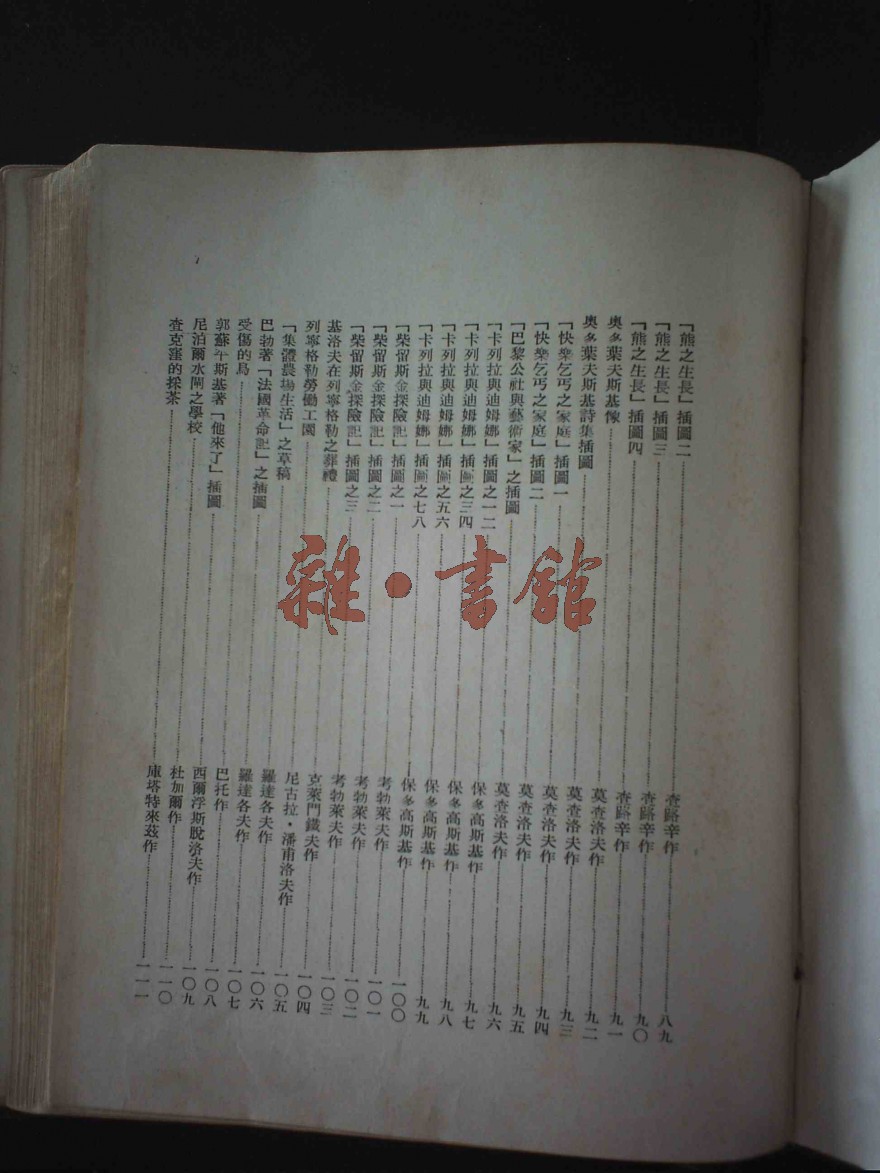 「熊之生長」插圖二……查路辛作……八九
「熊之生長」插圖三……查路辛作……九〇
「熊之生長」插圖四……查路辛作……九一
奧多葉夫斯基像……莫查洛夫作……九二
奧多葉夫斯基詩集插圖……莫查洛夫作……九三
「快樂乞丐之家庭」插圖一……莫查洛夫作……九四
「快樂乞丐之家庭」插圖二……莫查洛夫作……九五
「巴黎公社與藝術家」之插圖……莫查洛夫作……九六
「卡列拉與迪姆娜」插圖之一二……保多高斯基作……九七
「卡列拉與迪姆娜」插圖之三四……保多高斯基作……九八
「卡列拉與迪姆娜」插圖之五六……保多高斯基作……九九
「卡列拉與迪姆娜」插圖之七八……保多高斯基作……一〇〇
「柴留斯金探險記」插圖之一……考勃萊夫作……一〇一
「柴留斯金探險記」插圖之二……考勃萊夫作……一〇二
「柴留斯金探險記」插圖之三……考勃萊夫作……一〇三
基洛夫在列寧格勒之葬禮……克萊門鐵夫作……一〇四
列寧格勒勞働工園……尼古拉・潘甫洛夫作……一〇五
「集體農場生活」之草稿……羅達各夫作……一〇六
巴勃著「法國革命記」之插圖……羅達各夫作……一〇七
受傷的鳥……巴托作……一〇八
郭蘇午斯基著「他來了」插圖……西爾浮斯脫洛夫作……一〇九
尼泊爾水閘之學校……杜加爾作……一一〇
查克窪的採茶……庫塔特來茲作……一一一
雜・書館